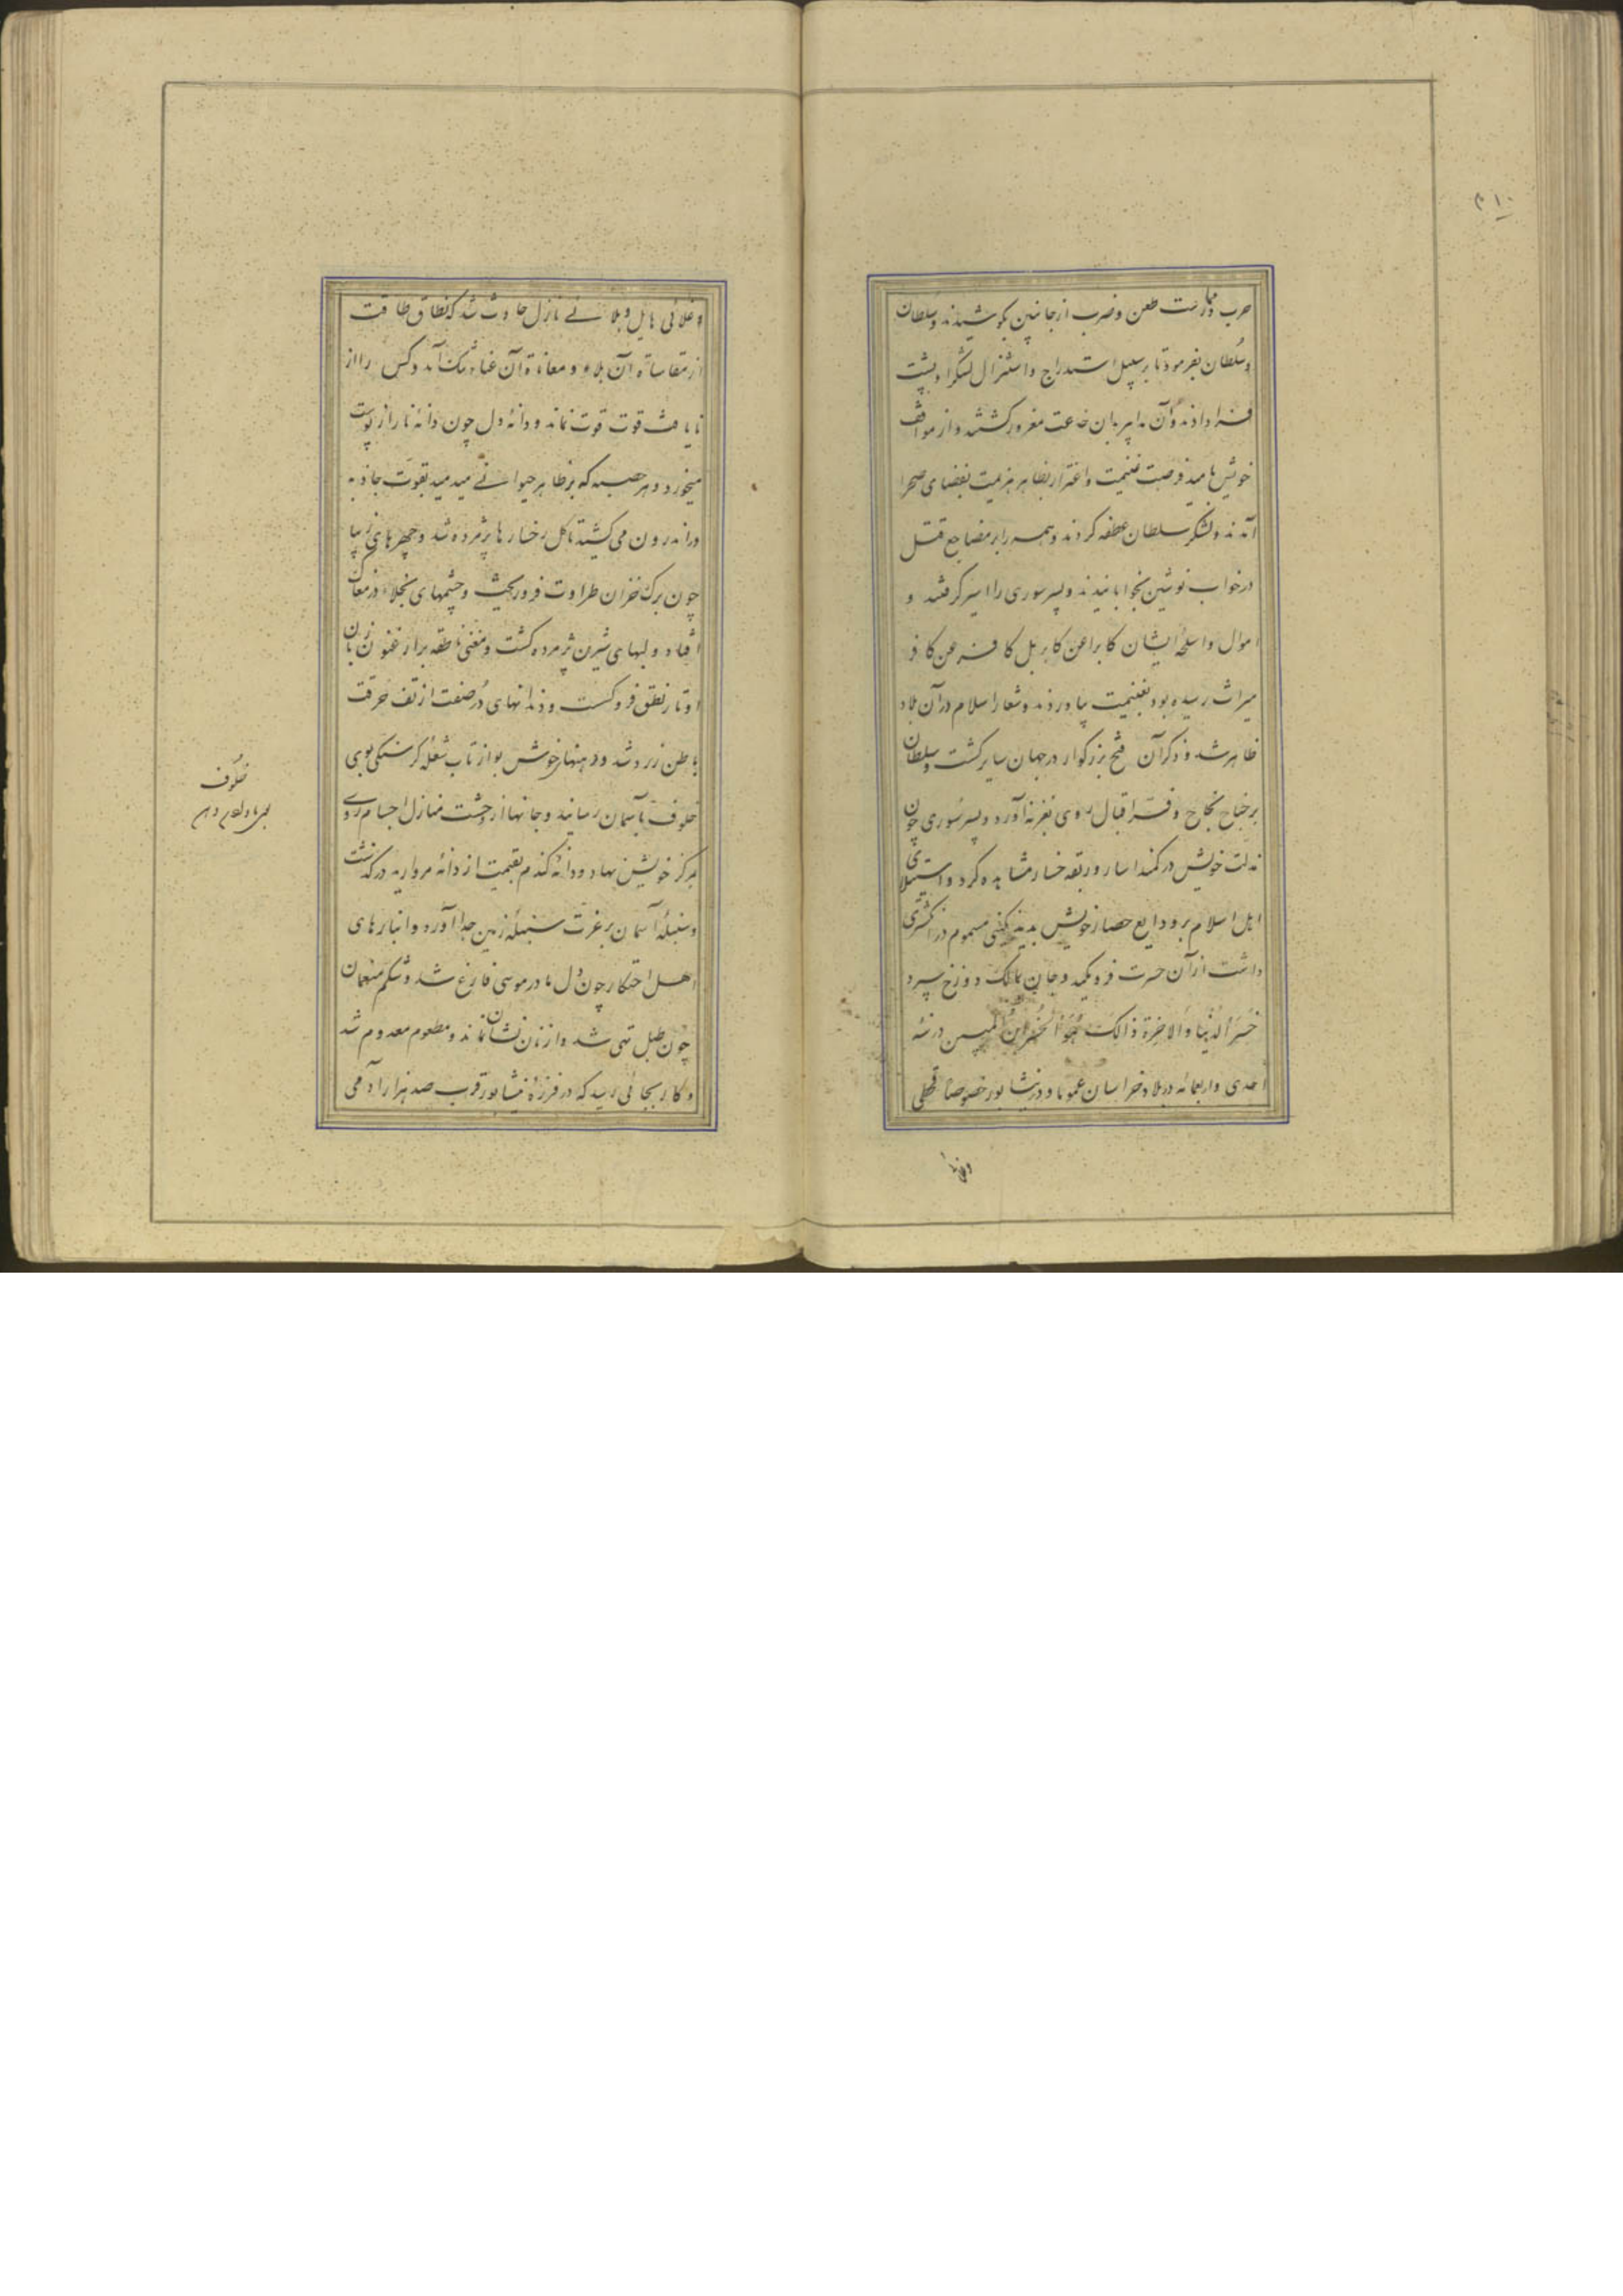 ۲۱۰
حرب و ممارست طعن و ضرب از جانبین بکوشیدند و سلطان
و سلطان بفرمود تا بر سبیل استدراج و استنزال لشکر او پشت
فرا دادند و آن مدابیر بان خدعت مغرور کشتند و از مواقف
خویش بامید فرصت غنیمت و اغترار بظاهر هزیمت بفضای صحرا
آمدند و لشکر سلطان عطفه کردند و همه را بر مضاجع قتل
در خواب نوشین بخوابانیدند و پسر سوری را اسیر کرفتند و
اموال و اسلحه ایشان کابرا عن کابر بل کافر عن کافر
میراث رسیده بود بغنیمت بیاوردند و شعار اسلام در آن بلاد
ظاهر شد و ذکر آن فتح بزرکوار در جهان سایر کشت و سلطان
بر جناح نجاح و فر اقبال روی بغزنه آورد و پسر سوری چون
مذلت خویش در کمند اسار و ربقه خسار مشاهده کرد و استیلای
اهل اسلام بر ودایع حصار خویش بدید نکینی مسموم در انکشتری
داشت از آن حسرت فرو مکید و جان بمالک دوزخ سپرد
خَسِرَ الدُنیا وَالاخِرَة ذالکَ هُوَ الخُسرانُ المبین در سنه
احدی و اربعمائه در بلاد خراسان عموما و در نیشابور خصوصا قحطی
و غلائی
و غلائی هایل و بلائی نازل حادث شد که نطاق طاقت
از مقاسات آن بلاء و معاناة آن عناء تنک آمد و کس را از
نایافت قوت قوت نماند و دانه دل چون دانه نار از پوست
میخورد و هر حسبه که بر ظاهر حیوانی میدمید بقوت جاذبه
در اندرون می کشید تا کل رخسارها پژمرده شد و چهرهای زیبا
چون برک خزان طراوت فرو ریخت و چشمهای نجلاء در مغاک
افتاد و لبهای شیرین پژمرده کشت و مغنی ناطقه بر ارغنون زبان
اوتار نطق فرو کسست و دندانهای دُر صفت از تف حرقت
باطن زرد شد و دهنهای خوش بو از تاب شعله کرسنکی بوی
خلوف بآسمان رسانید و جانها از وحشت منازل اجسام روی
بمرکز خویش نهاد و دانه کندم بقیمت از دانه مروارید در کذشت
و سنبله آسمان بر غرت سنبله زمین حبد آورد و انبارهای
اهل احتکار چون دل مادر موسی فارغ شد و شکم منعمان
چون طبل تهی شد و از نان نشان نماند و مطعوم معدوم شد
و کار بجائی رسید که در فرزه نیشابور قرب صد هزار آدمی
خلُوف